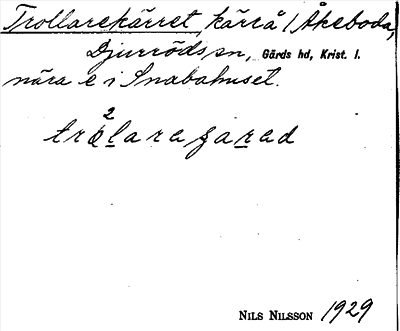 Trollarekärret, kärr å Åkeboda,
Djurröds sn, Gärds hd, Krist. l.
nära e i Snabahuset.
2
Nils Nilsson 1929